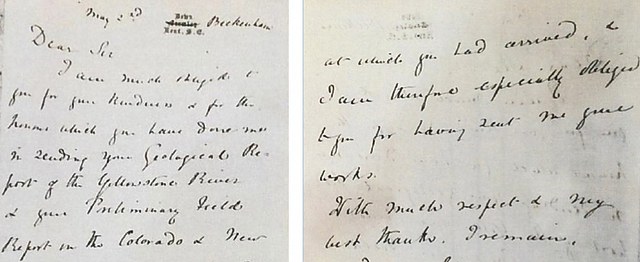 May 2nd
Down,
Beckenham
Kent. S.E.
Dear Sir
I am much obliged to
you for your kindness & for the
honour which you have done me
in sending your Geological Re-
port of the Yellowstone River
& your Preliminary Field
Report on the Colorado & New
at which you had arrived, &
I am therefore especially obliged
to you for having sent me your
works.
With much respect & my
best thanks. I remain,